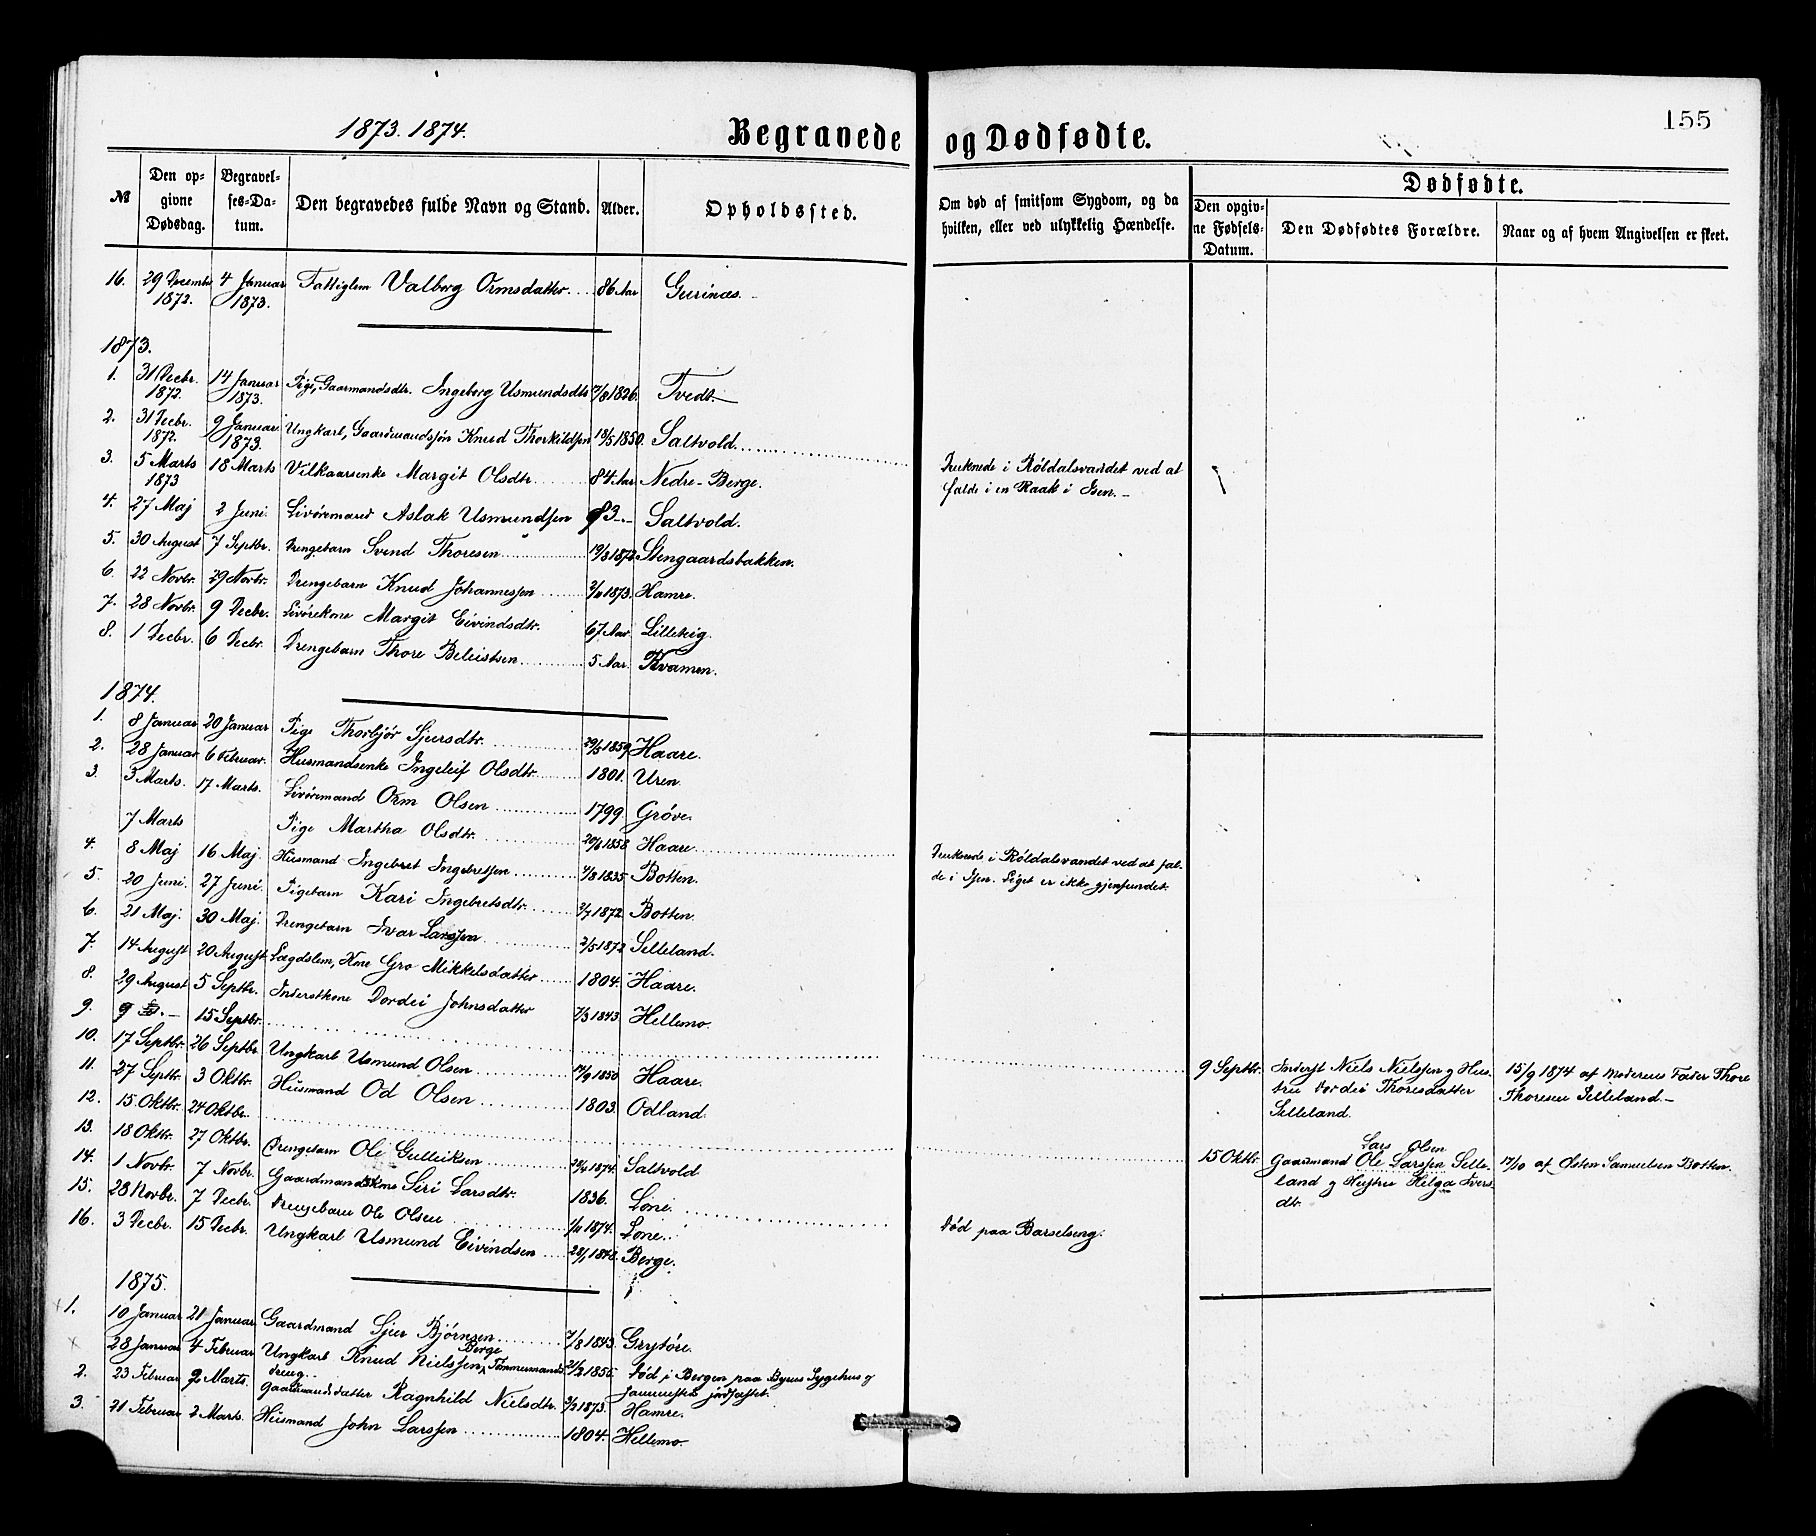 155
1873. 1874.
Begravede og Dødfødte.
№
Den opgivne Dødsdag.
Begravelses-Datum.
Den begravedes fulde Navn og Stand.
Alder.
Opholdssted.
Om død af smitsom Sygdom, og da hvilken, eller ved ulykkelig Hændelse.
Dødfødte.
Den opgivne Fødsels-Datum.
Den Dødfødtes Forældre.
Naar og af hvem Angivelsen er skeet.
16. 29 Decembr 1872. 4 Januar 1873. Fattiglem Valborg Ormsdatter. 86 Aar Gurinæs.
1873.
1. 31 Decbr. 1872. 14 Januar 1873. Pige, Gaarmandsdtr. Ingeborg Usmundsdtr 7/8 1826. Tvedt.
2. 31 Decbr. 1872. 9 Januar 1873. Ungkarl, Gaardmandssøn Knud Thorkildsen 18/5 1850. Saltvold. Druknede i Røldalsvandet ved at falde i en Raak i Isen.
3. 5 Marts 1873 18 Marts Vilkaarsenke Margit Olsdtr. 84 Aar Nedre-Berge.
4. 27 Maj 2 Juni. Livøremand Aslak Usmundsen 83 Saltvold.
5. 30 August 7 Septbr. Drengebarn Svend Thoresen 19/3 1872 Stengaardsbakken.
6. 22 Novbr. 29 Novbr. Drengebarn Knud Johannessen 2/11 1873. Hamre.
7. 28 Novbr. 9 Decbr. Livørekone Margit Eivindsdtr. 67 Aar. Lilleteig.
8. 1 Decbr. 6 Decbr. Drengebarn Thore Beleistsen 5 Aar. Kvamen.
1874.
1. 8 Januar 20 Januar Pige Thorbjør Sjursdtr. 29/5 1859. Haare.
2. 28 Januar 6 Februar. Husmandsenke Ingeleif Olsdtr 1801. Uren.
3. 3 Marts. 17 Marts. Livøremand Orm Olsen 1799. Grøve.
7 Marts Pige Martha Olsdtr. 20/6 1858 Haare. Druknede i Røldalsvandet ved at falde i Isen. Liget er ikke gjenfundet.
4. 8 Maj 16 Maj Husmand Ingebret Ingebretsen 4/8 1835 Botten.
5. 20 Juni. 27 Juni. Pigebarn Kari Ingebretsdtr. 3/7 1872 Botten.
6. 21 Maj. 30 Maj. Drengebarn Ivar Larssen 2/5 1872 Selleland.
7. 14 August 20 August Lægdslem, Kone Gro Mikkelsdatter 1804. Haare.
8. 29 August 5 Septbr. Inderstkone Dordei Johnsdatter 7/3 1843. Hellemo.
9. 9 15 Septbr. 9 Septbr. Inderst Niels Nielssen og Hustru Dordei Thoresdatter Selleland. 15/9 1874 af Moderens Fader Thore Thoresen Selleland.
10. 17 Septbr. 26 Septbr. Ungkarl Usmund Olsen 14/9 1850 Haare.
11. 27 Septbr. 3 Oktbr. Husmand Od Olsen 1803. Odland.
12. 15 Oktbr. 24 Oktbr. 15 Oktbr. Gaardmand Ole Larssen Lars Olsen Selleland og Hustru Helga Iversdtr. 17/10 af Østen Samuelsen Botten.
13. 18 Oktbr. 27 Oktbr. Drengebarn Ole Gulleiksen 1874. Saltvold
14. 1 Novbr. 7 Novbr. Gaardmandskone Siri Larsdtr. 1836. Lone. Død paa Barselseng.
15. 28 Novbr. 7 Decbr. Drengebarn Ole Olsen 1/11 1874. Lone.
16. 3 Decbr. 15 Decbr. Ungkarl Usmund Eivindsen 28/1 1848. Berge.
1875.
1. 10 Januar 21 Januar Gaardmand Sjur Bjørnsen 7/8 1843. Grytøre.
28 Januar 4 Februar Ungkarl Knud Nielssen Berge, Tømmermand 21/2 1855. Død i Bergen paa Byens Sygehus og sammesteds jordfæstet.
2. 23 Februar 2 Marts. Gaardmandsdatter Ragnhild Nielsdtr. 2/2 1873. Hamre.
3. 21 Februar 2 Marts. Husmand John Larssen 1804. Hellemo.